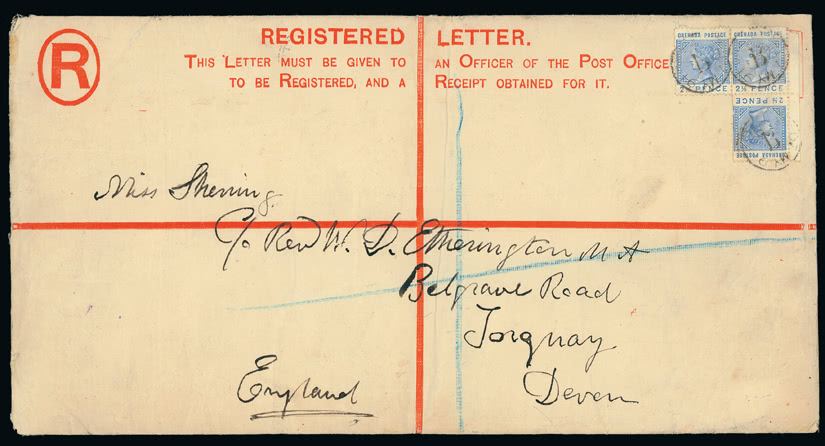 R
REGISTERED LETTER.
THIS LETTER MUST BE GIVEN TO AN OFFICER OF THE POST OFFICE
TO BE REGISTERED, AND A RECEIPT OBTAINED FOR IT.
GRENADA POSTAGE GRENADA POSTAGE
2½ PENCE 2½ PENCE
2½ PENCE
GRENADA POSTAGE
Miss
C/o Rev W. D. Etherington M A
Belgrave Road
Torquay
Devon
England